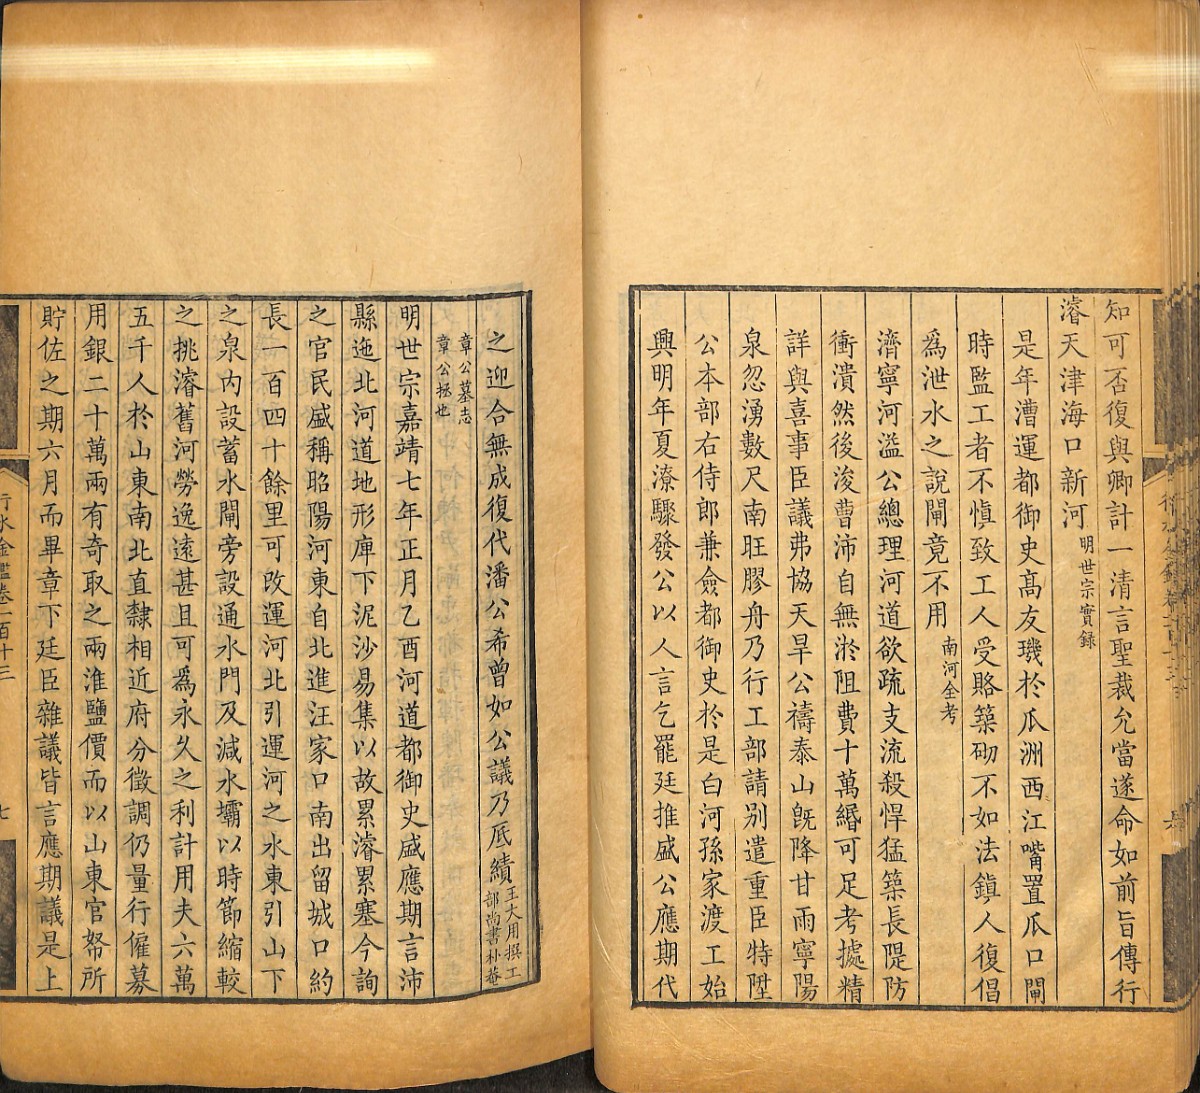 知可否復與卿計一清言聖裁允當遂命如前旨傳行
濬天津海口新河明世宗實録
是年漕運都御史髙友璣於瓜洲西江嘴置瓜口閘
時監工者不愼致工人受賂築砌不如法鎭人復倡
爲泄水之說閘竟不用南河全考
濟寧河溢公總理河道欲疏支流殺悍猛築長隄防
衝潰然後浚曹沛自無淤阻費十萬緡可足考據精
詳與喜事臣議弗協天旱公禱泰山旣降甘雨寧陽
泉忽湧數尺南旺膠舟乃行工部請别遣重臣特陞
公本部右侍郎兼僉都御史於是白河孫家渡工始
興明年夏潦驟發公以人言乞罷廷推盛公應期代
之迎合無成復代潘公希曾如公議乃厎績王大用撰工
部尚書朴菴
章公墓志
章公拯也
明世宗嘉靖七年正月乙酉河道都御史盛應期言沛
縣迤北河道地形庫下泥沙易集以故累濬累塞今詢
之官民咸稱昭陽河東自北進汪家口南出留城口約
長一百四十餘里可改運河北引運河之水東引山下
之泉內設蓄水閘旁設通水門及減水壩以時節縮較
之挑濬舊河勞逸遠甚且可爲永久之利計用夫六萬
五千人於山東南北直隸相近府分徵調仍量行僱募
用銀二十萬兩有奇取之兩淮鹽價而以山東官帑所
貯佐之期六月而畢章下廷臣雜議皆言應期議是上
行水金鑑卷一百十三
七